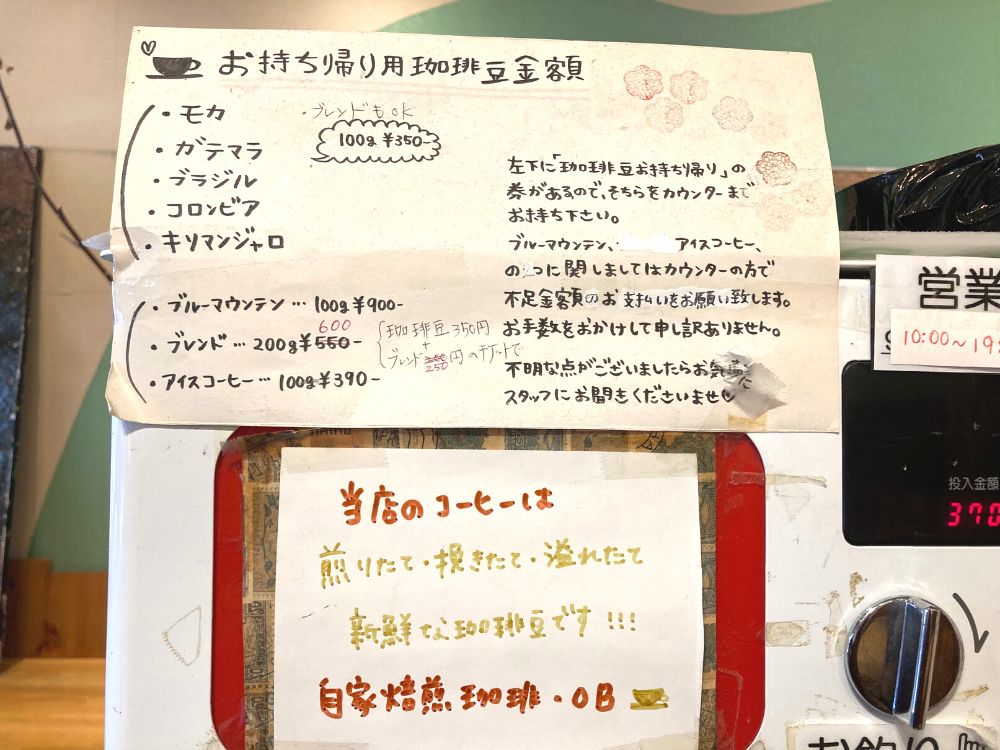 お持ち帰り用珈琲豆金額
・モカ
・ブレンドもOK
100g ¥350-
・ガテマラ
・ブラジル
・コロンビア
・キリマンジャロ
・ブルーマウンテン…100g¥900-
600
・ブレンド…200g¥550-
珈琲豆350円
+
ブレンド250円のチケットで
・アイスコーヒー…100g¥390-
左下に「珈琲豆お持ち帰り」の
券があるので、そちらをカウンターまで
お持ち下さい。
ブルーマウンテン、アイスコーヒー、
の2つに関しましてはカウンターの方で
不足金額のお支払いをお願い致します。
お手数をおかけして申し訳ありません。
不明な点がございましたらお気
に
スタッフにお聞きくださいませ
営業
10:00~19:
投入金額
370
当店のコーヒーは
煎りたて・挽きたて・溢れたて
新鮮な珈琲豆です!!!
自家焙煎珈琲・OB
お釣り